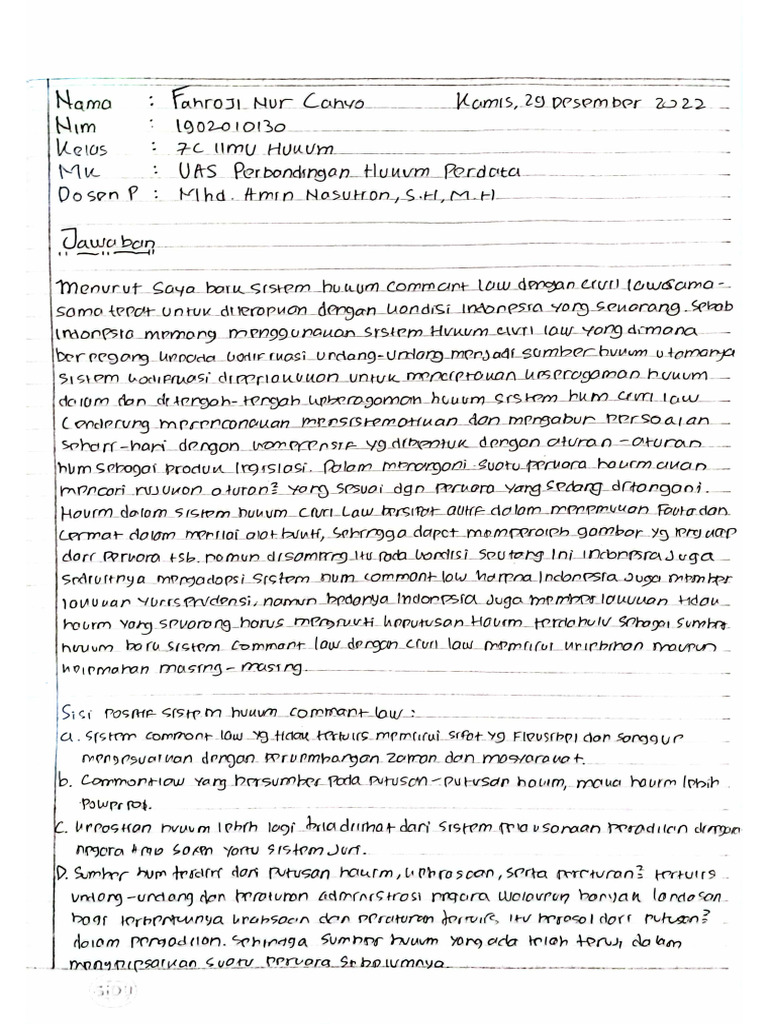 Nama : Fahroji Nur Cahyo Kamis, 29 Desember 2022
Nim : 1902010130
Kelas : 7C Ilmu Hukum
Mk : UAS Perbandingan Hukum Perdata
Dosen P : Mhd. Amin Nasution, S.H, M.H
Jawaban
Menurut Saya baik sistem hukum commont law dengan civil law sama-
sama tepat untuk diterapkan dengan kondisi Indonesia yang sekarang. Sebab
Indonesia memang menggunakan sistem Hukum civil law yang dimana
berpegang kepada kodifikasi undang-undang menjadi sumber hukum utamanya
sistem kodifikasi diperlakukan untuk menciptakan keseragaman hukum
dalam dan ditengah-tengah keberagaman hukum sistem hum civil law
Cenderung merencanakan mensistematikan dan mengabur persoalan
sehari-hari dengan komprensif yg dibentuk dengan aturan-aturan
hum sebagai produk legislasi. Dalam menangani suatu perkara hakim akan
mencari rujukan aturan² yang sesuai dgn perkara yang sedang ditangani.
Hakim dalam sistem hukum Civil Law bersifat aktif dalam menemukan Fakta dan
Cermat dalam menilai alat bukti, sehingga dapat memperoleh gambar yg lengkap
dari perkara tsb. namun disamping itu pada kondisi sekarang ini Indonesia Juga
sedikitnya mengadopsi sistem hum commont law karena Indonesia Juga member
lakukan Yurisprudensi, namun bedanya Indonesia Juga memberlakukan tidak
hakim yang sekarang harus mengikuti keputusan Hakim terdahulu sebagai sumber
hukum baik sistem Commont law dengan civil law memiliki kelebihan maupun
kelemahan masing-masing.
Sisi positif sistem hukum commont law :
a. Sistem commont law yg tidak tertulis memiliki sifat yg Fleksibel dan sanggup
menyesuaikan dengan perkembangan Zaman dan masyarakat.
b. Commont law yang bersumber pada putusan-putusan hakim, maka hakim lebih
powerfol.
C. kepastian hukum lebih lagi bila dilihat dari sistem pelaksanaan peradilan dengan
negara Anglo Saxon yaitu sistem Juri.
D. Sumber hum terdiri dari putusan hakim, kebiasaan, serta peraturan² tertulis
undang-undang dan peraturan administrasi negara walaupun banyak landasan
bagi terbentuknya kebiasaan dan peraturan tertulis, itu berasal dari putusan²
dalam pengadilan. Sehingga sumber hukum yang ada telah teruji dalam
menyelesaikan suatu perkara sebelumnya.